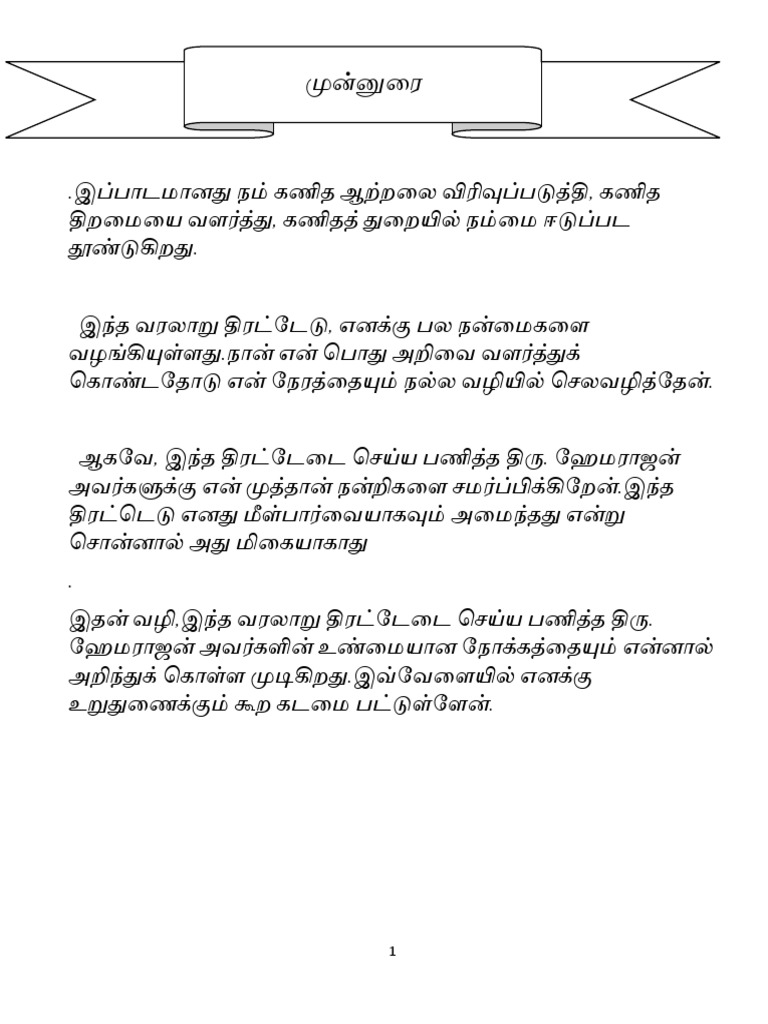 முன்னுரை
.இப்பாடமானது நம் கணித ஆற்றலை விரிவுப்படுத்தி, கணித
திறமையை வளர்த்து, கணிதத் துறையில் நம்மை ஈடுப்பட
தூண்டுகிறது.
இந்த வரலாறு திரட்டேடு, எனக்கு பல நன்மைகளை
வழங்கியுள்ளது.நான் என் பொது அறிவை வளர்த்துக்
கொண்டதோடு என் நேரத்தையும் நல்ல வழியில் செலவழித்தேன்.
ஆகவே, இந்த திரட்டேடை செய்ய பணித்த திரு. ஹேமராஜன்
அவர்களுக்கு என் முத்தான் நன்றிகளை சமர்ப்பிக்கிறேன்.இந்த
திரட்டெடு எனது மீள்பார்வையாகவும் அமைந்தது என்று
சொன்னால் அது மிகையாகாது
.
இதன் வழி,இந்த வரலாறு திரட்டேடை செய்ய பணித்த திரு.
ஹேமராஜன் அவர்களின் உண்மையான நோக்கத்தையும் என்னால்
அறிந்துக் கொள்ள முடிகிறது.இவ்வேளையில் எனக்கு
உறுதுணைக்கும் கூற கடமை பட்டுள்ளேன்.
1